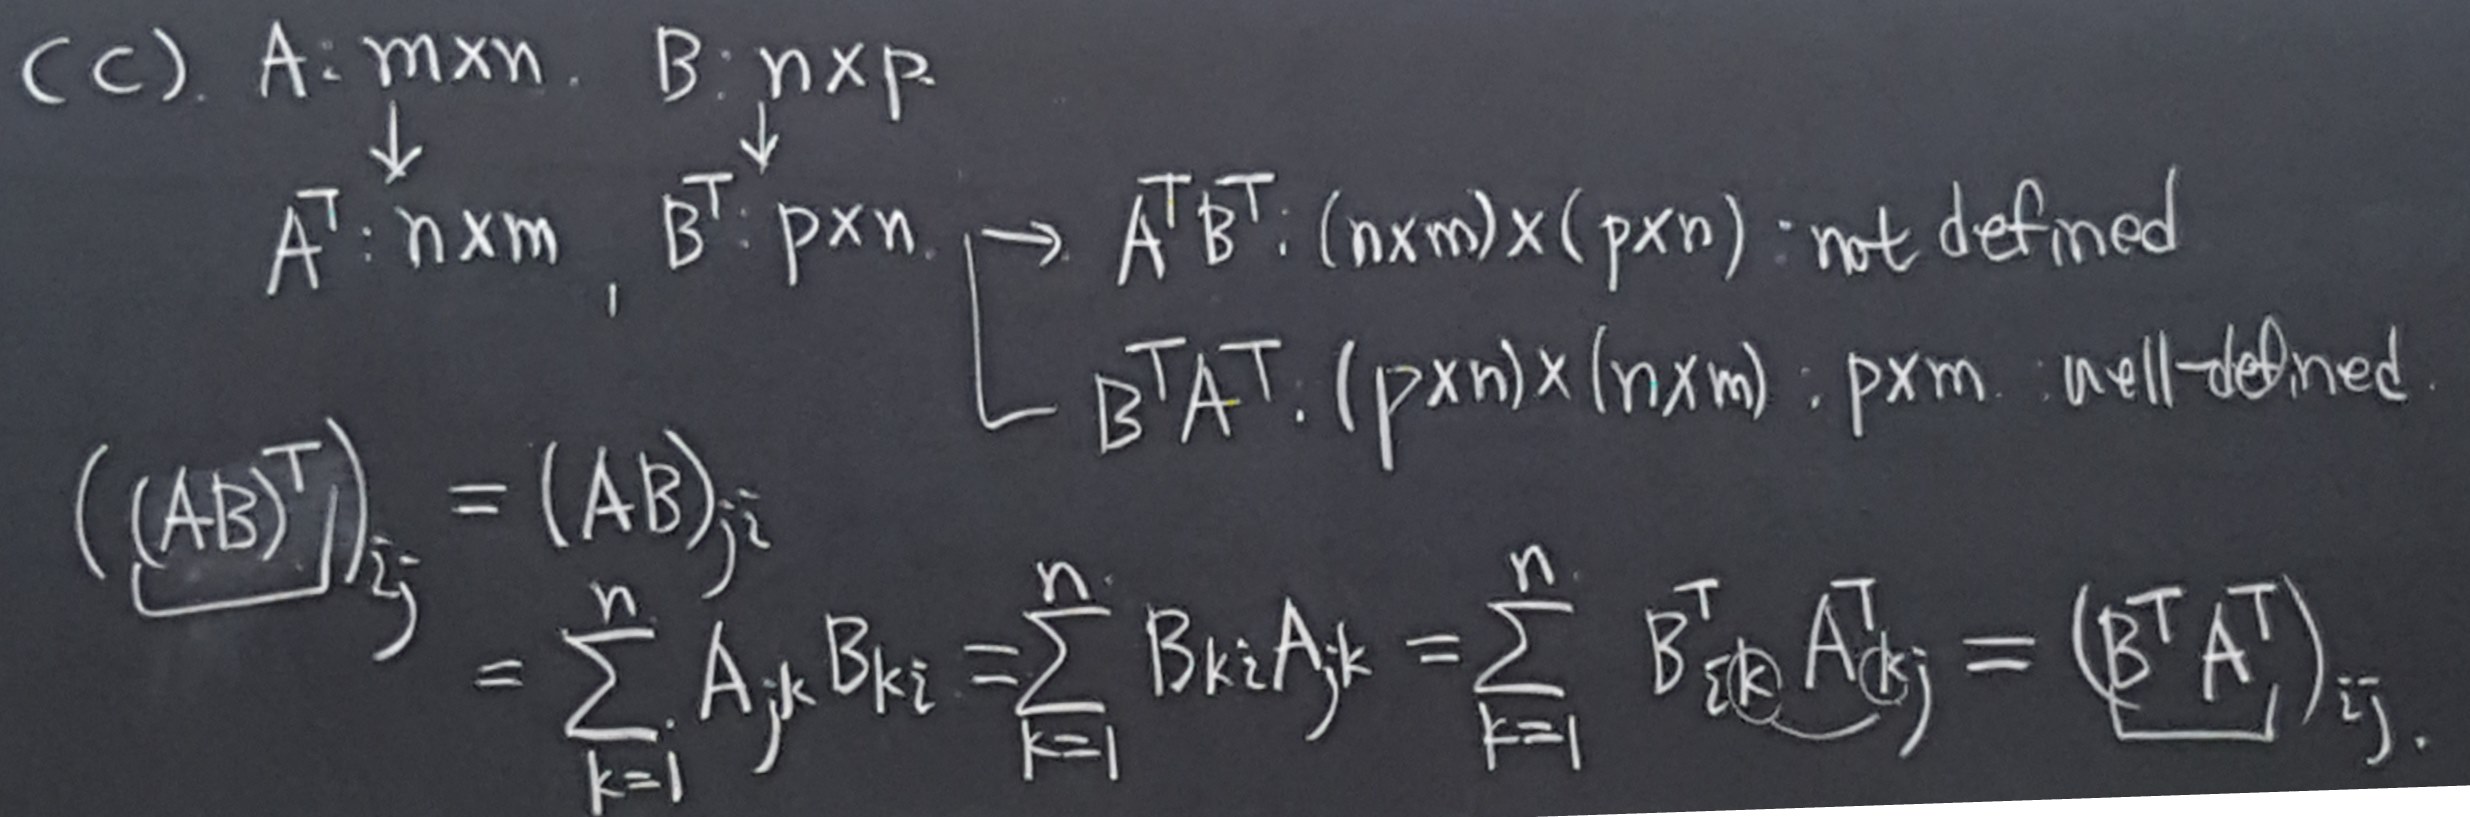 (c). A: m×n. B: n×p.
↓ ↓
Aᵀ: n×m, Bᵀ: p×n. → AᵀBᵀ: (n×m)×(p×n): not defined
BᵀAᵀ: (p×n)×(n×m): p×m. : well-defined.
((AB)ᵀ)ᵢⱼ = (AB)ⱼᵢ
= ∑ₖ₌₁ⁿ Aⱼₖ Bₖᵢ = ∑ₖ₌₁ⁿ Bₖᵢ Aⱼₖ = ∑ₖ₌₁ⁿ Bᵀᵢₖ Aᵀₖⱼ = (BᵀAᵀ)ᵢⱼ.